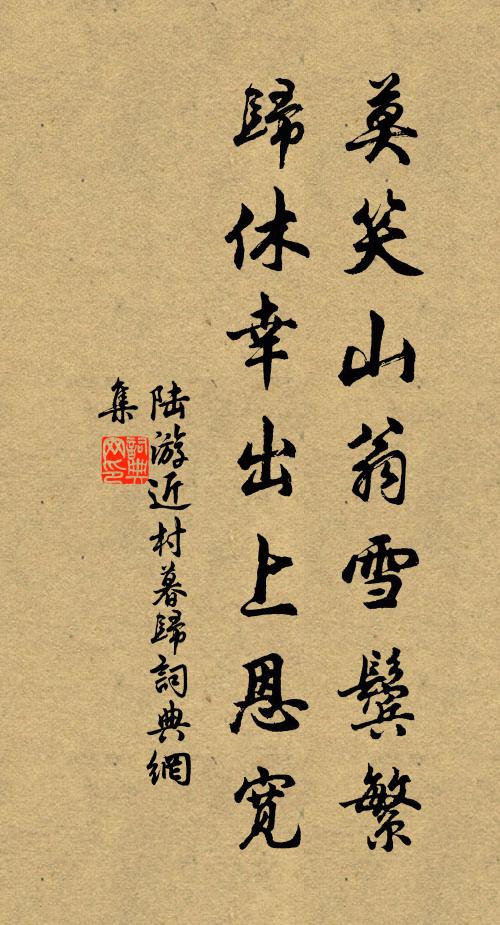 莫笑山翁雪鬢繁
歸休幸出上恩寬
陆游近村暮歸詞典網
集
詞典網印